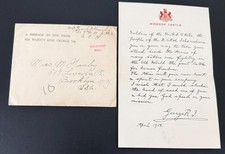 A MESSAGE TO YOU FROM
HIS MAJESTY KING GEORGE Vth
Brooklyn N.Y.
U.S.A.
WINDSOR CASTLE
Soldiers of the United States, the
people of the British Isles welcome
you on your way to take your
stand beside the Armies of
many Nations now fighting in
the Old World the great battle
for human freedom.
The Allies will gain new heart
& spirit in your company.
I wish that I could shake
the hand of each one of you
& bid you God speed on your
mission.
George R.I.
April 1918